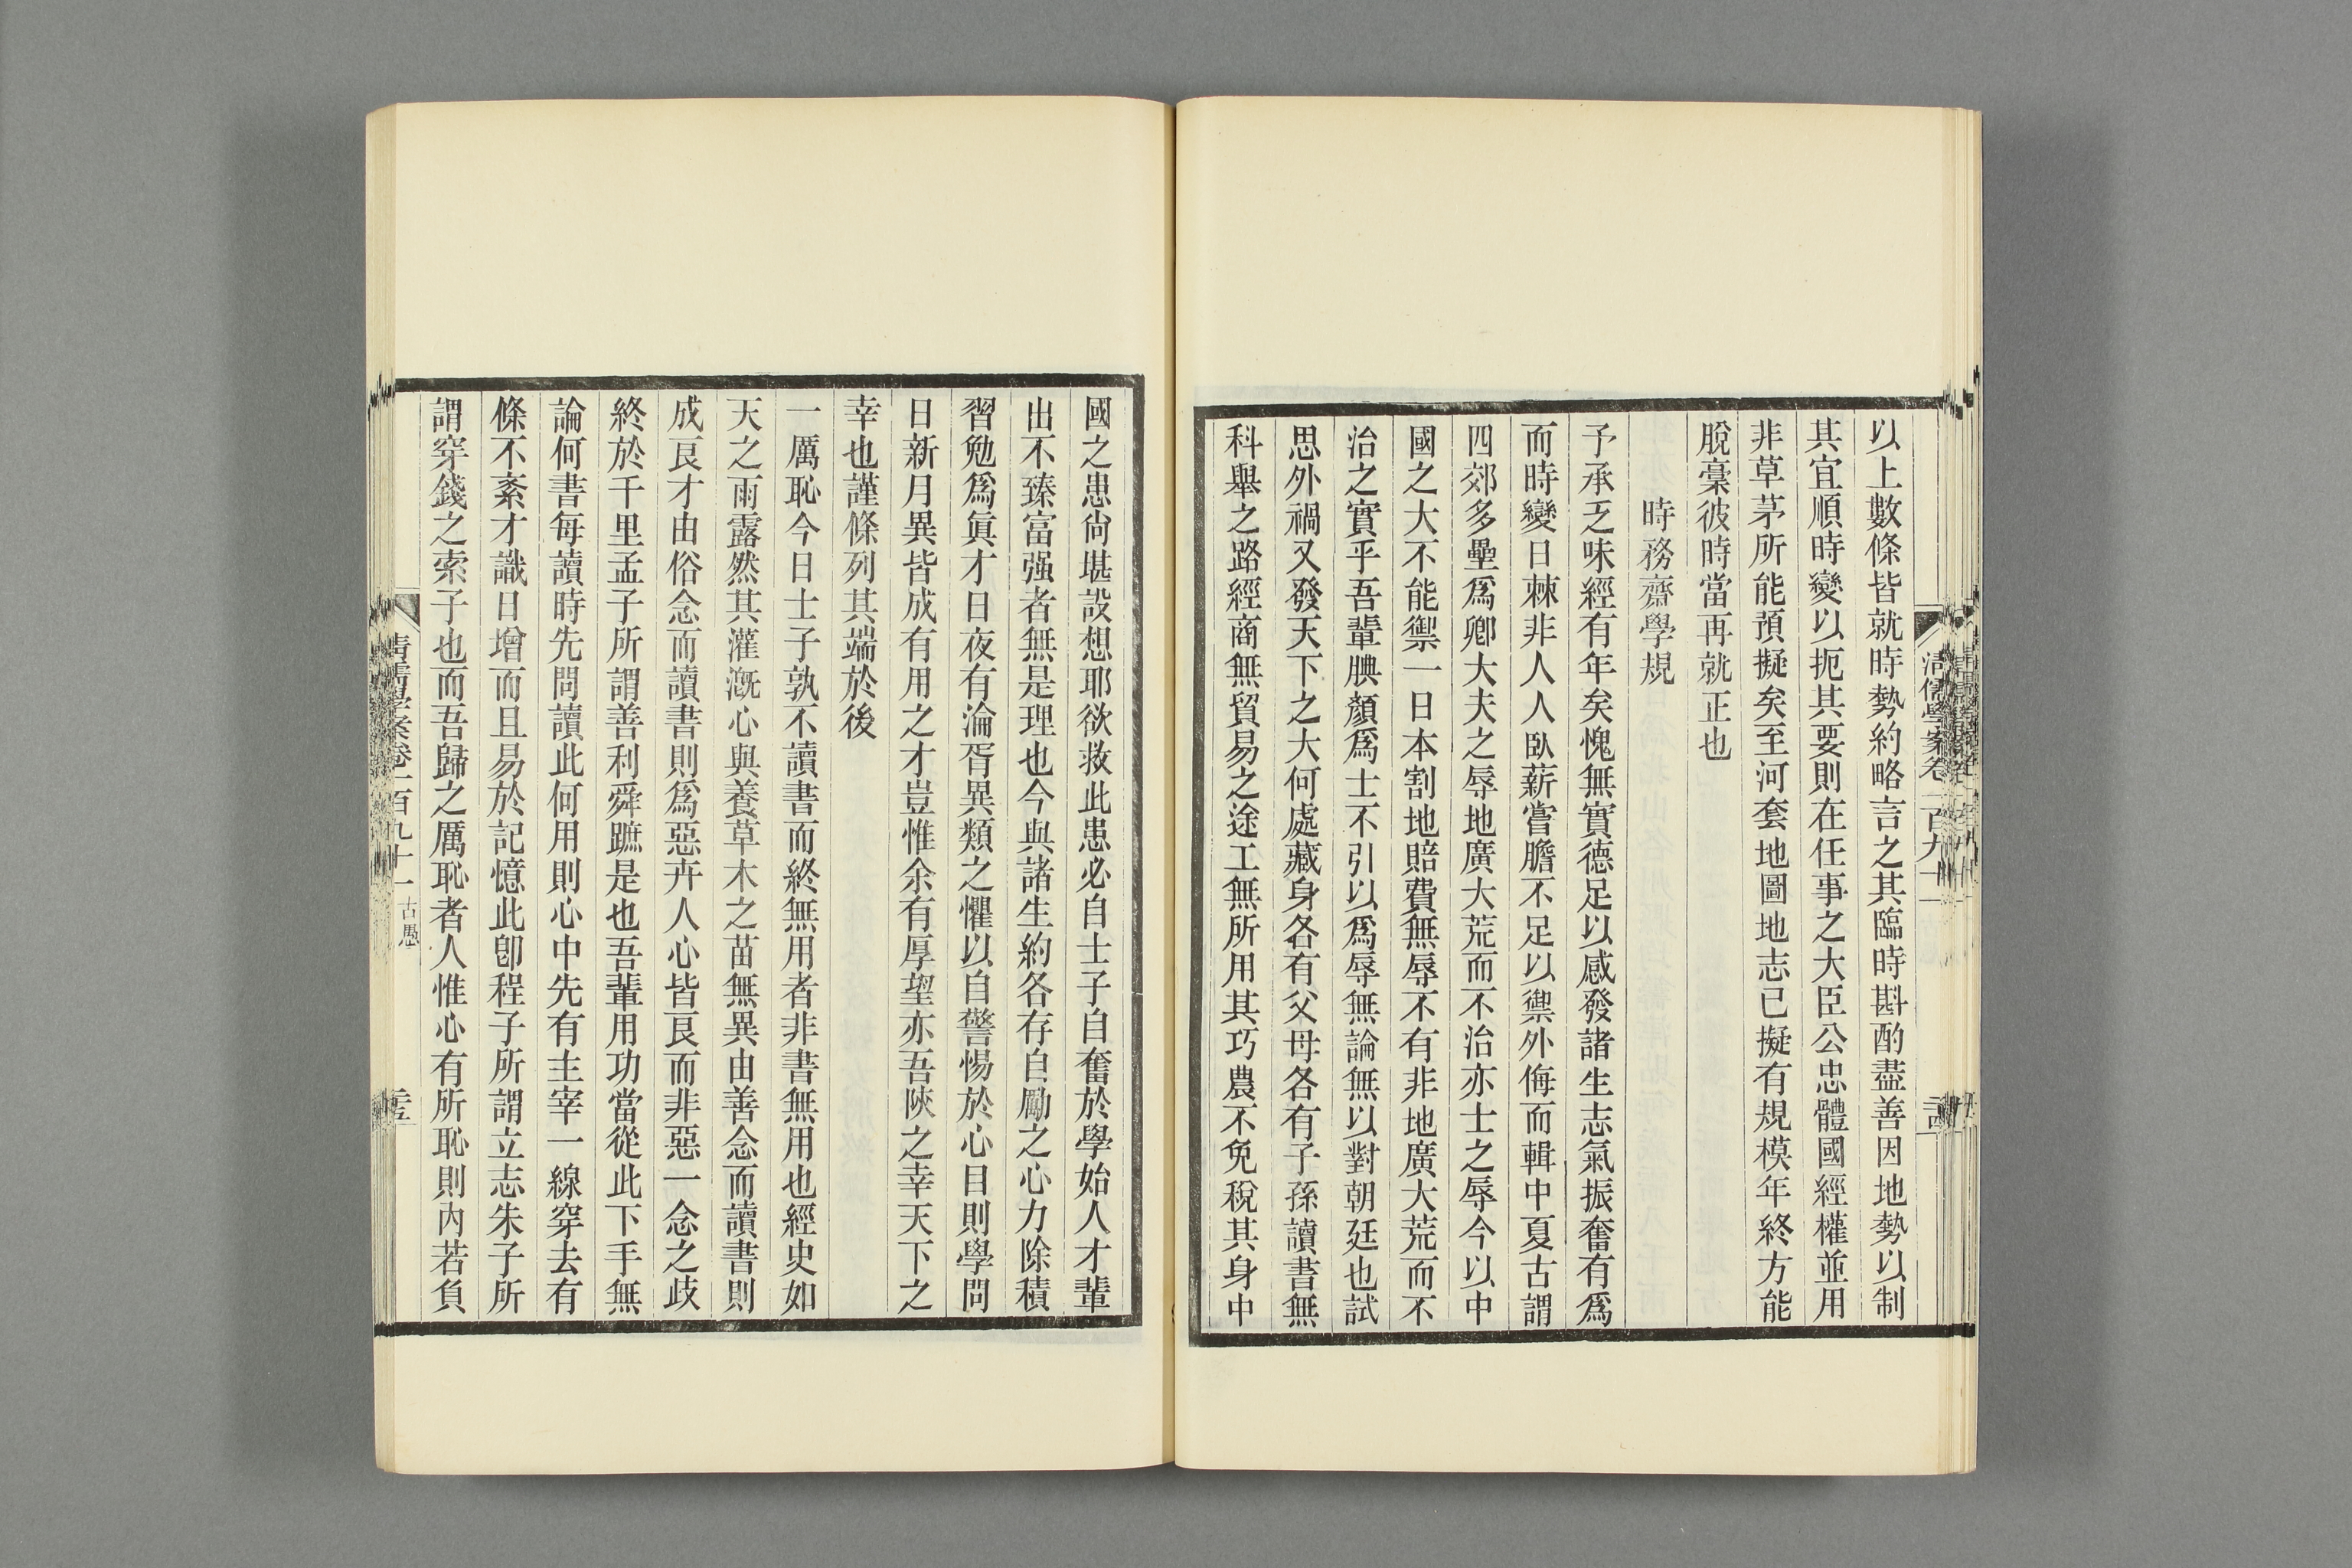 以上數條皆就時勢約略言之其臨時斟酌盡善因地勢以制
其宜順時變以扼其要則在任事之大臣公忠體國經權並用
非草茅所能預擬矣至河套地圖地志已擬有規模年終方能
脫稾彼時當再就正也
時務齋學規
予承乏味經有年矣愧無實德足以感發諸生志氣振奮有爲
而時變日棘非人人臥薪嘗膽不足以禦外侮而輯中夏古謂
四郊多壘爲卿大夫之辱地廣大荒而不治亦士之辱今以中
國之大不能禦一日本割地賠費無辱不有非地廣大荒而不
治之實乎吾輩腆顏爲士不引以爲辱無論無以對朝廷也試
思外禍又發天下之大何處藏身各有父母各有子孫讀書無
科舉之路經商無貿易之途工無所用其巧農不免稅其身中
清儒學案卷一百九十一
國之患尙堪設想耶欲救此患必自士子自奮於學始人才輩
出不臻富强者無是理也今與諸生約各存自勵之心力除積
習勉爲眞才日夜有淪胥異類之懼以自警惕於心目則學問
日新月異皆成有用之才豈惟余有厚望亦吾陝之幸天下之
幸也謹條列其端於後
一厲恥今日士子孰不讀書而終無用者非書無用也經史如
天之雨露然其灌漑心與養草木之苗無異由善念而讀書則
成良才由俗念而讀書則爲惡卉人心皆良而非惡一念之歧
終於千里孟子所謂善利舜蹠是也吾輩用功當從此下手無
論何書每讀時先問讀此何用則心中先有主宰一線穿去有
條不紊才識日增而且易於記憶此卽程子所謂立志朱子所
謂穿錢之索子也而吾歸之厲恥者人惟心有所恥則內若負
清儒學案卷一百九十一 古愚